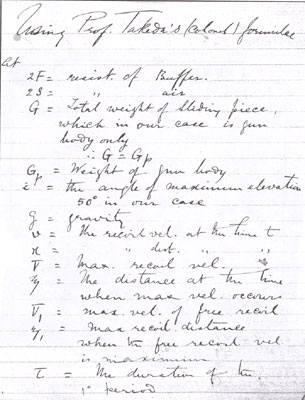 Using Prof. Takeda's (Colonel) formulae
At
2F = resist of Buffer.
2S = " air
G = Total weight of sliding piece,
which in our case is gun
body only
∴ G = Gp
Gp = Weight of gun body
i = the angle of maximum elevation
50° in our case
g = gravity
v = The recoil vel. at the time t
x = " dist. " "
V = Max. recoil vel.
= The distance at the time
when max vel. occurs
V₁ = max. vel. of free recoil
= Max recoil distance
when the free recoil vel
is maximum
τ = The duration of the
1° period